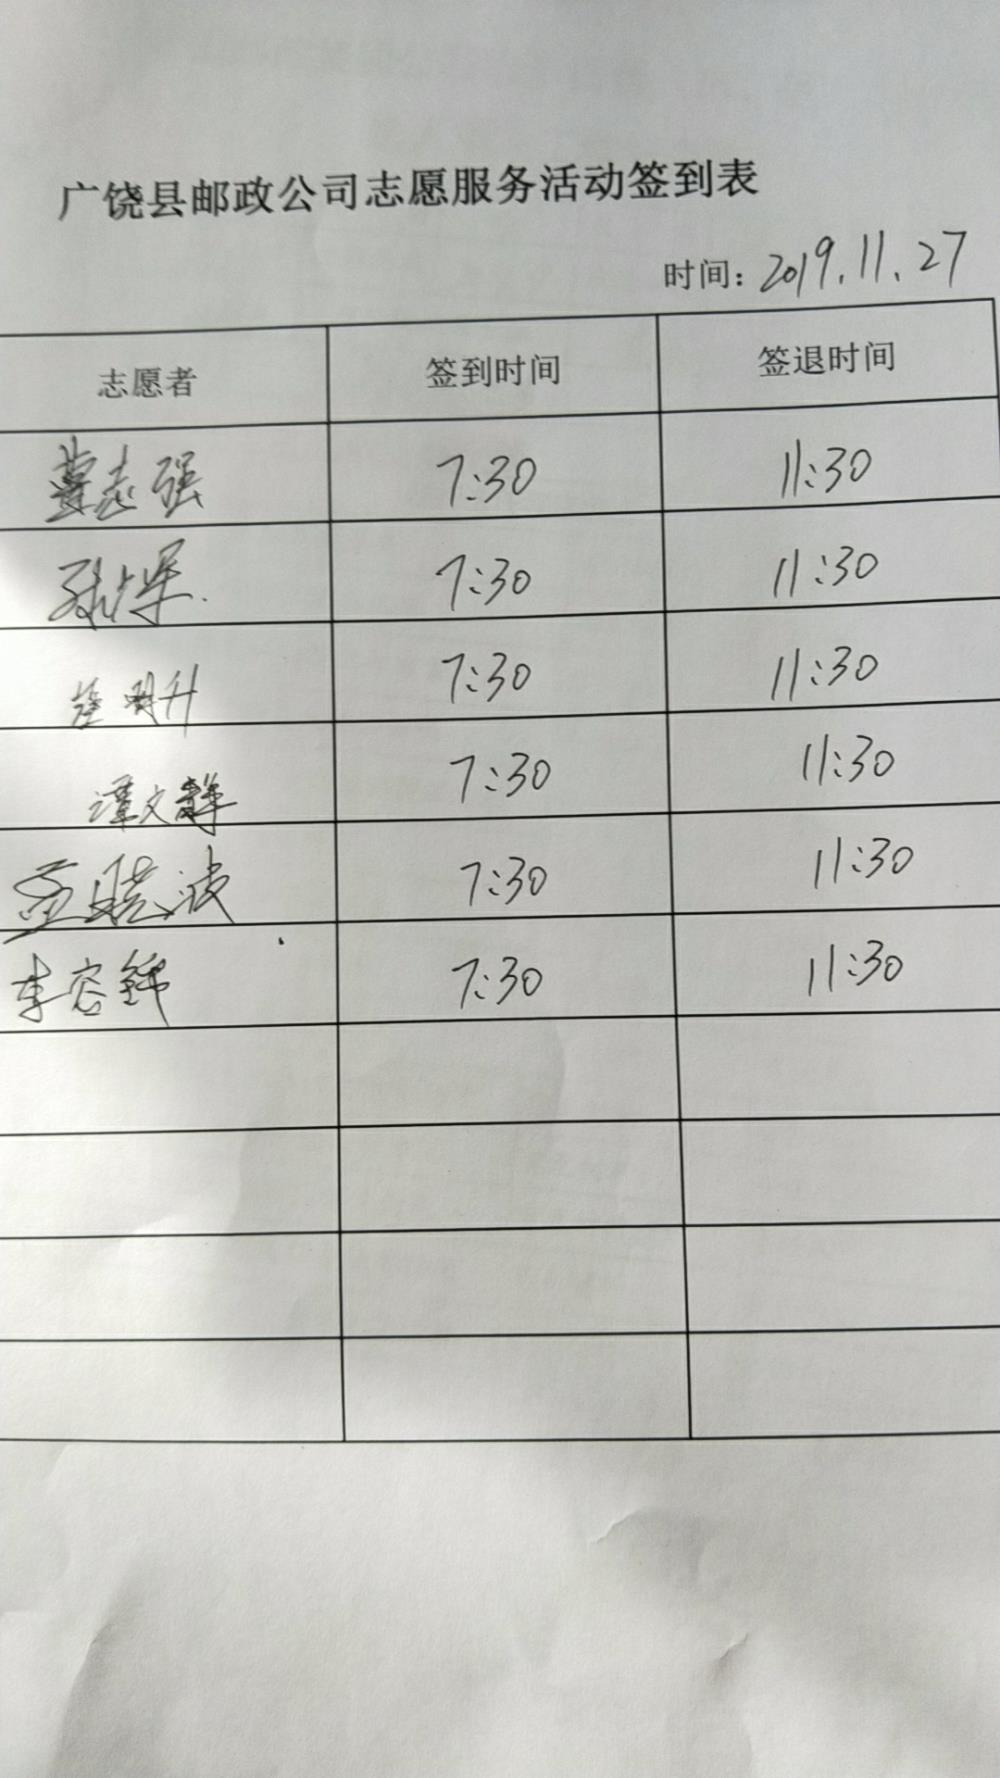 广饶县邮政公司志愿服务活动签到表
时间：2019.11.27
志愿者 签到时间 签退时间
董志强 7:30 11:30
孙占军. 7:30 11:30
明升 7:30 11:30
谭文静 7:30 11:30
孟晓波 7:30 11:30
李容 7:30 11:30